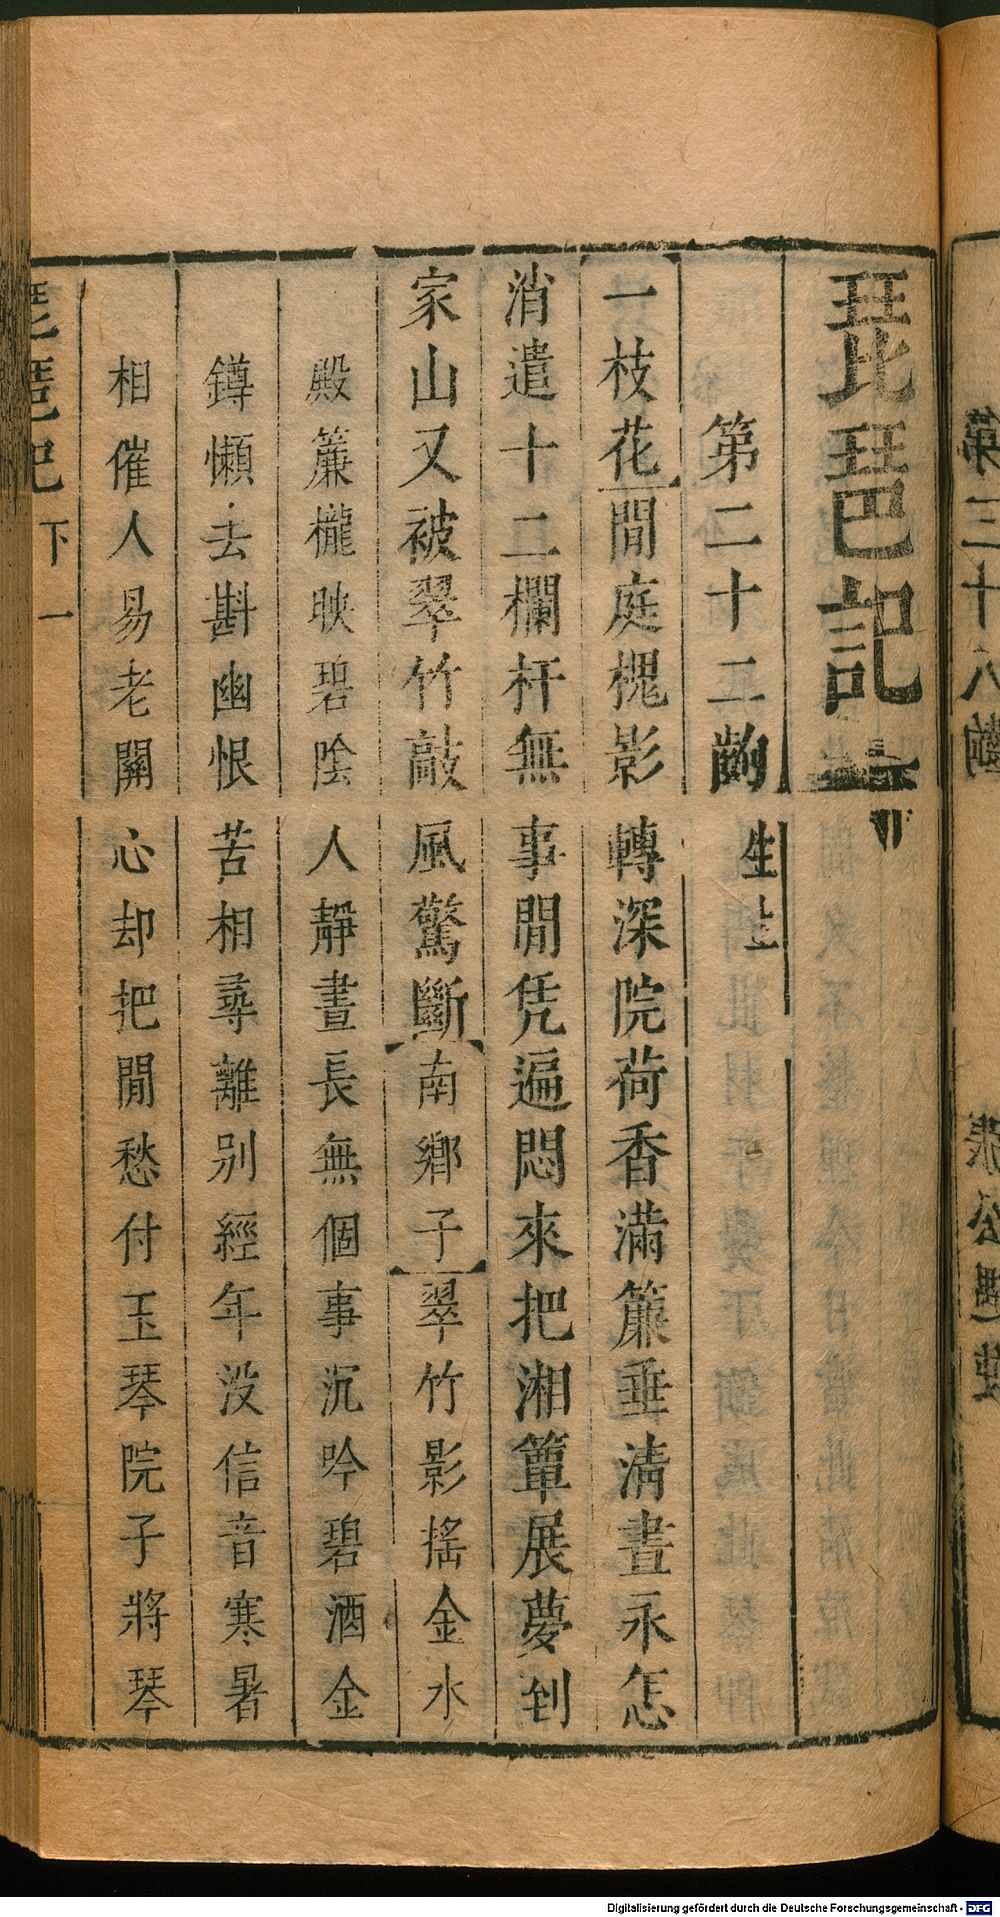 琵琶記
第二十二齣
生上
一枝花閒庭槐影轉深院荷香滿簾垂清晝永怎
消遣十二欄杆無事閒凭遍悶來把湘簟展夢到
家山又被翠竹敲風驚斷南鄉子翠竹影搖金水
殿簾櫳映碧陰人靜晝長無個事沉吟碧酒金
鐏懶去斟幽恨苦相尋離別經年没信音寒暑
相催人易老關心却把閒愁付玉琴院子將琴
琵琶記 下 一
第三十八齣
張公遇使
Digitalisierung gefördert durch die Deutsche Forschungsgemeinschaft - DFG